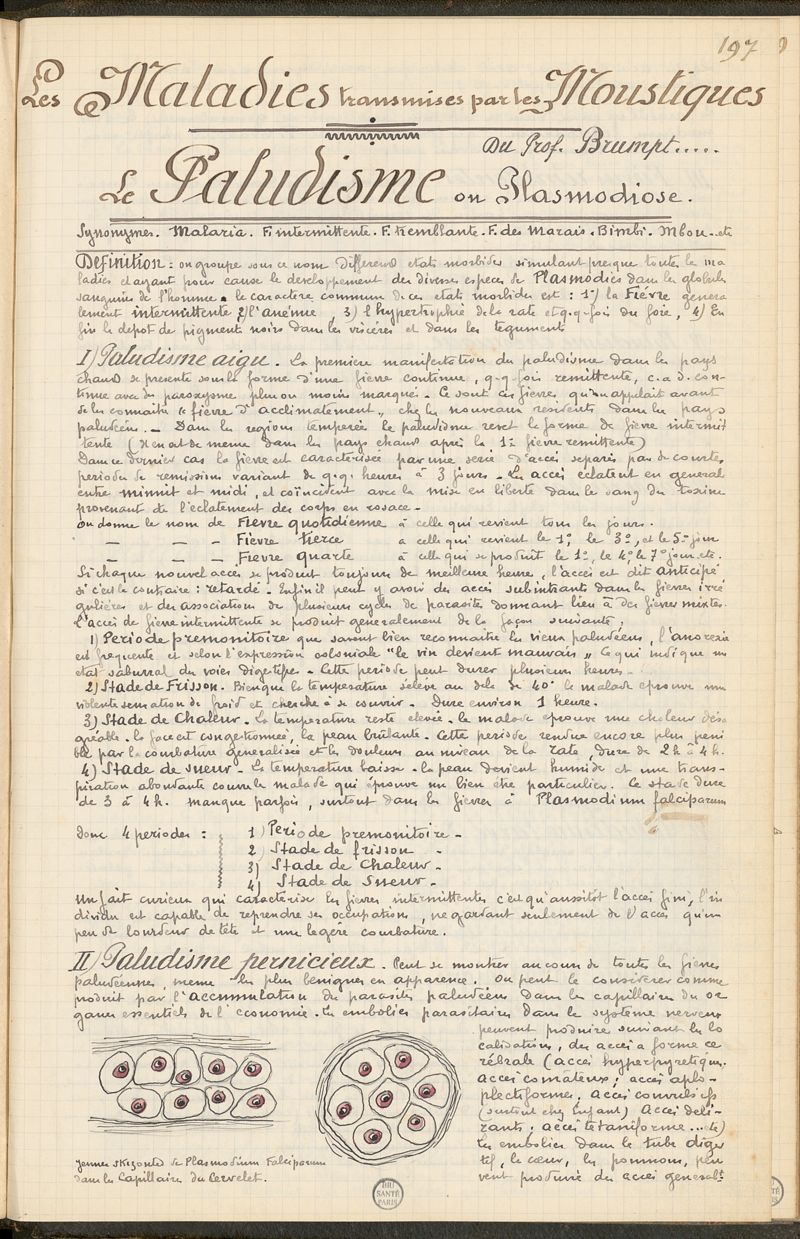 197
Les Maladies transmises par les Moustiques
Du Prof. Brumpt.....
Le Paludisme ou Plasmodiose.
Synonymes. Malaria. F. intermittente. F. tremblante. F. des Marais. Bimbi. Mbou. etc
Definition : on groupe sous ce nom differend etats morbides simulant presque toutes les ma
ladies et ayant pour cause le developpement des diverses especes de Plasmodies dans les globules
sanguins de l'homme. le caractère commun de ces etats morbides est : 1°) la Fièvre genera
lement intermittente 2) l'anémie, 3) l'hypertrophie de la rate et q.q. fois du foie, 4) En
fin le depot de pigments noirs dans les viscères et dans les tegument
I) Paludisme aigu. La premiere manifestation du paludisme dans les pays
chaud se presente sous la forme d'une fievre continue, q.q. fois remittente, c.a.d. con-
tinue avec des paroxysme plus ou moins marqués. Ce sont ces fievres qu'on appelait avant
de les connaitre "fievre d'acclimatement" chez les nouveaux residents dans les pays
paludéens. - Dans les regions temperée le paludisme revet la forme de fievre intermit
tente (Il en est de meme dans les pays chaud après la 1re fievre remittente)
Dans ce dernier cas la fievre est caractérisée par une serie d'accès separés par de courtes
periodes de remissions variant de q.q. heures à 3 jours. Les accès eclatent en general
entre minuit et midi, et coïncident avec la mise en liberté dans le sang du toxine
provenant de l'eclatement des corps en rosace.
on donne le nom de Fievre quotidienne à celle qui revient tous les jours.
— — — Fievre tierce a celle qui revient le 1°, le 3°, et le 5° jour
— — — Fievre quarte à celle qui se produit le 1°, le 4°, le 7° jour. etc.
Si chaque nouvel accès se produit toujours de meilleure heure, l'accès est dit anticipé
si c'est le contraire : retardé. Enfin il peut y avoir des accès subintrants dans les fievres irré
gulières et des associations de plusieurs cycles de parasite donnant lieu à des fievres mixtes.
L'accès de fievre intermittente se produit generalement de la façon suivante.
1) Periode premonitoire que savent bien reconnaitre les vieux paludéens, l'anorexie
est frequente et selon l'expression coloniale "le vin devient mauvais" ce qui indique un
etat saburral des voies digestifes. Cette periode peut durer plusieurs heures.
2) Stade de Frisson. Bien que la temperature s'élève au dela de 40° le malade eprouve une
violente sensation de froid et cherche à se couvrir. Dure environ 1 heure.
3) Stade de Chaleur. La temperature reste elevée. le malade eprouve une chaleur désa
gréable. la face est congestionnée, la peau brûlante. Cette periode rendue encore plus peni
ble par la courbature generalisée et les douleurs au niveau de la rate, dure de 2h à 4h.
4) Stade de sueur. La temperature baisse. la peau devient humide et une trans-
piration abondante couvre le malade qui éprouve un bien etre particulier. Ce stade dure
de 3 à 4h. manque parfois, surtout dans les fievres à Plasmodium falciparum
Donc 4 periodes : 1) Periode premonitoire -
2) Stade de frisson -
3) Stade de Chaleur -
4) Stade de Sueur -
Un fait curieux qui caractérise les fievres intermittentes c'est qu'aussitôt l'accès fini, l'in
dividu est capable de reprendre ses occupation, ne gardant seulement de l'accès qu'un
peu de lourdeur de tête et une legère courbature.
II) Paludisme pernicieux. Peut se montrer au cours de toutes les fievres
paludéennes, meme les plus benignes en apparence. on peut le considérer comme
produit par l'accumulation du parasites paludéens dans les capillaires des or
ganes essentiels de l'economie. Les embolies parasitaires dans le système nerveux
peuvent produire suivant leur lo
calisation, des accès a forme ce
rébrale (accès hyperpyretique.
accès comateux ; accès aplo-
plectiformes, accès convulsifs
(surtout chez Enfant) Accès deli-
rants ; accès tetaniforme ... etc)
les embolies dans le tube diges
tif, le cœur, les poumons, peu
vent produire des accès generalt
Jeunes skizontes de Plasmodium Falciparum
dans les Capillaires du Cervelet.
BIU
SANTÉ
PARIS